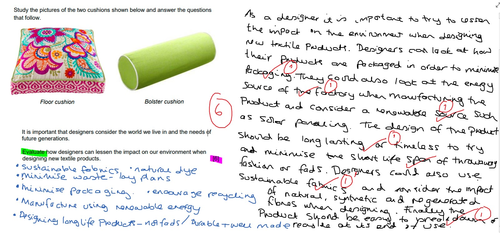 Study the pictures of the two cushions shown below and answer the questions
that follow.
Floor cushion
Bolster cushion
It is important that designers consider the world we live in and the needs of
future generations.
Evaluate how designers can lessen the impact on our environment when
designing new textile products.
• Sustainable fabrics • natural dye
• minimise waste - lay plans
• minimise packaging • encourage recycling
• Manufacture using renewable energy
• Designing long life products - not fads / durable + well made
6
As a designer it is important to try to lessen
the impact on the environment when designing
new textile products. Designers can look at how
their products are packaged in order to minimise
packaging. They could also look at the energy
source of the factory when manufacturing the
product and consider a renewable source such
as solar panelling. The design of the product
should be long lasting or timeless to try
and minimise the short life span of throwaway
fashion or fads. Designers could also use
sustainable fabrics and consider the impact
of natural, synthetic and regenerated
fibres when designing. Finally the
product should be easy to break down or
recycle at its end of use.